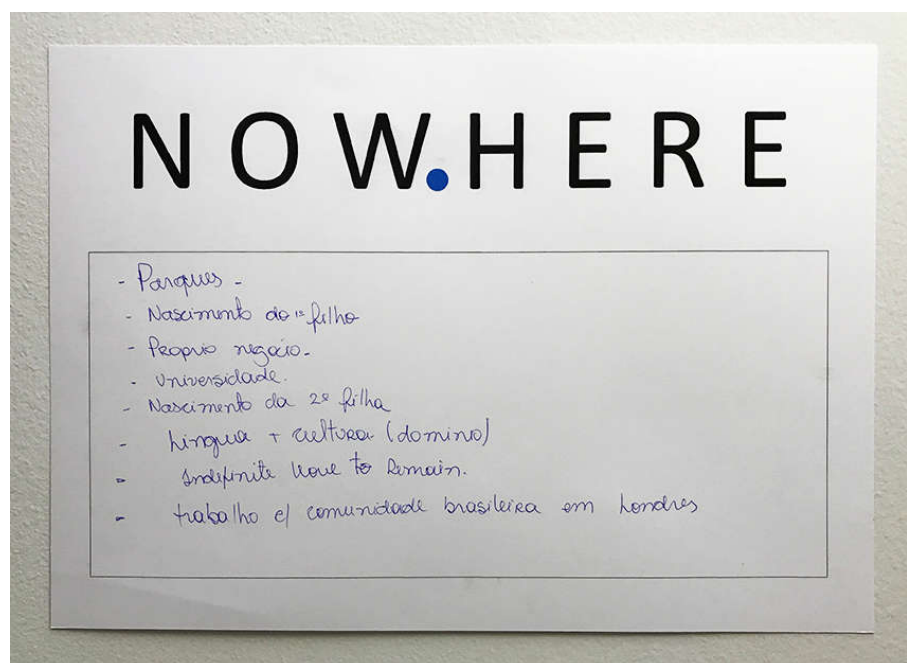 NOW.HERE
- Parques -
- Nascimento do 1º filho
- Proprio negocio -
- Universidade.
- Nascimento da 2ª filha
- Lingua + cultura (domino)
- Indefinite leave to Remain.
- trabalho c/ comunidade brasileira em Londres